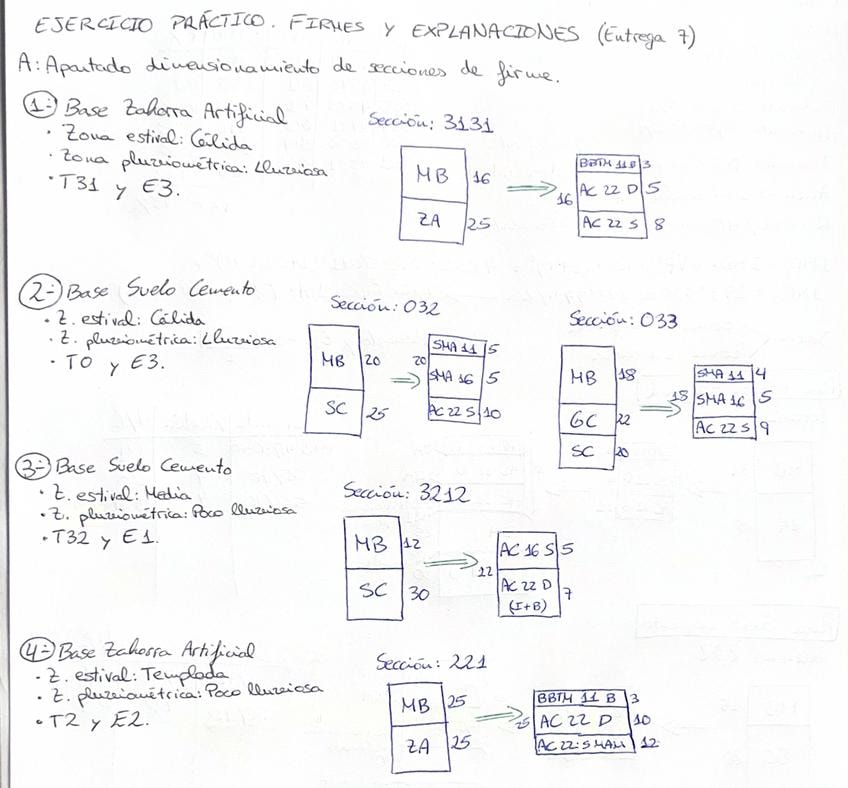 EJERCICIO PRÁCTICO. FIRMES Y EXPLANACIONES (Entrega 7)
A: Apartado dimensionamiento de secciones de firme.
1-) Base Zahorra Artificial
· Zona estival: Cálida
· Zona pluviométrica: Lluviosa
· T31 y E3.
Sección: 3131
MB 16
ZA 25
16
BBTM 11B 3
AC 22 D 5
AC 22 S 8
2-) Base Suelo Cemento
· Z. estival: Cálida
· Z. pluviométrica: Lluviosa
· T0 y E3.
Sección: 032
MB 20
SC 25
20
SMA 11 5
SMA 16 5
AC 22 S 10
Sección: 033
MB 18
GC 22
SC 20
18
SMA 11 4
SMA 16 5
AC 22 S 9
3-) Base Suelo Cemento
· Z. estival: Media
· Z. pluviométrica: Poco lluviosa
· T32 y E1.
Sección: 3212
MB 12
SC 30
12
AC 16 S 5
AC 22 D 7
(I+B)
4-) Base Zahorra Artificial
· Z. estival: Templada
· Z. pluviométrica: Poco lluviosa
· T2 y E2.
Sección: 221
MB 25
ZA 25
25
BBTM 11 B 3
AC 22 D 10
AC 22 S MAM 12